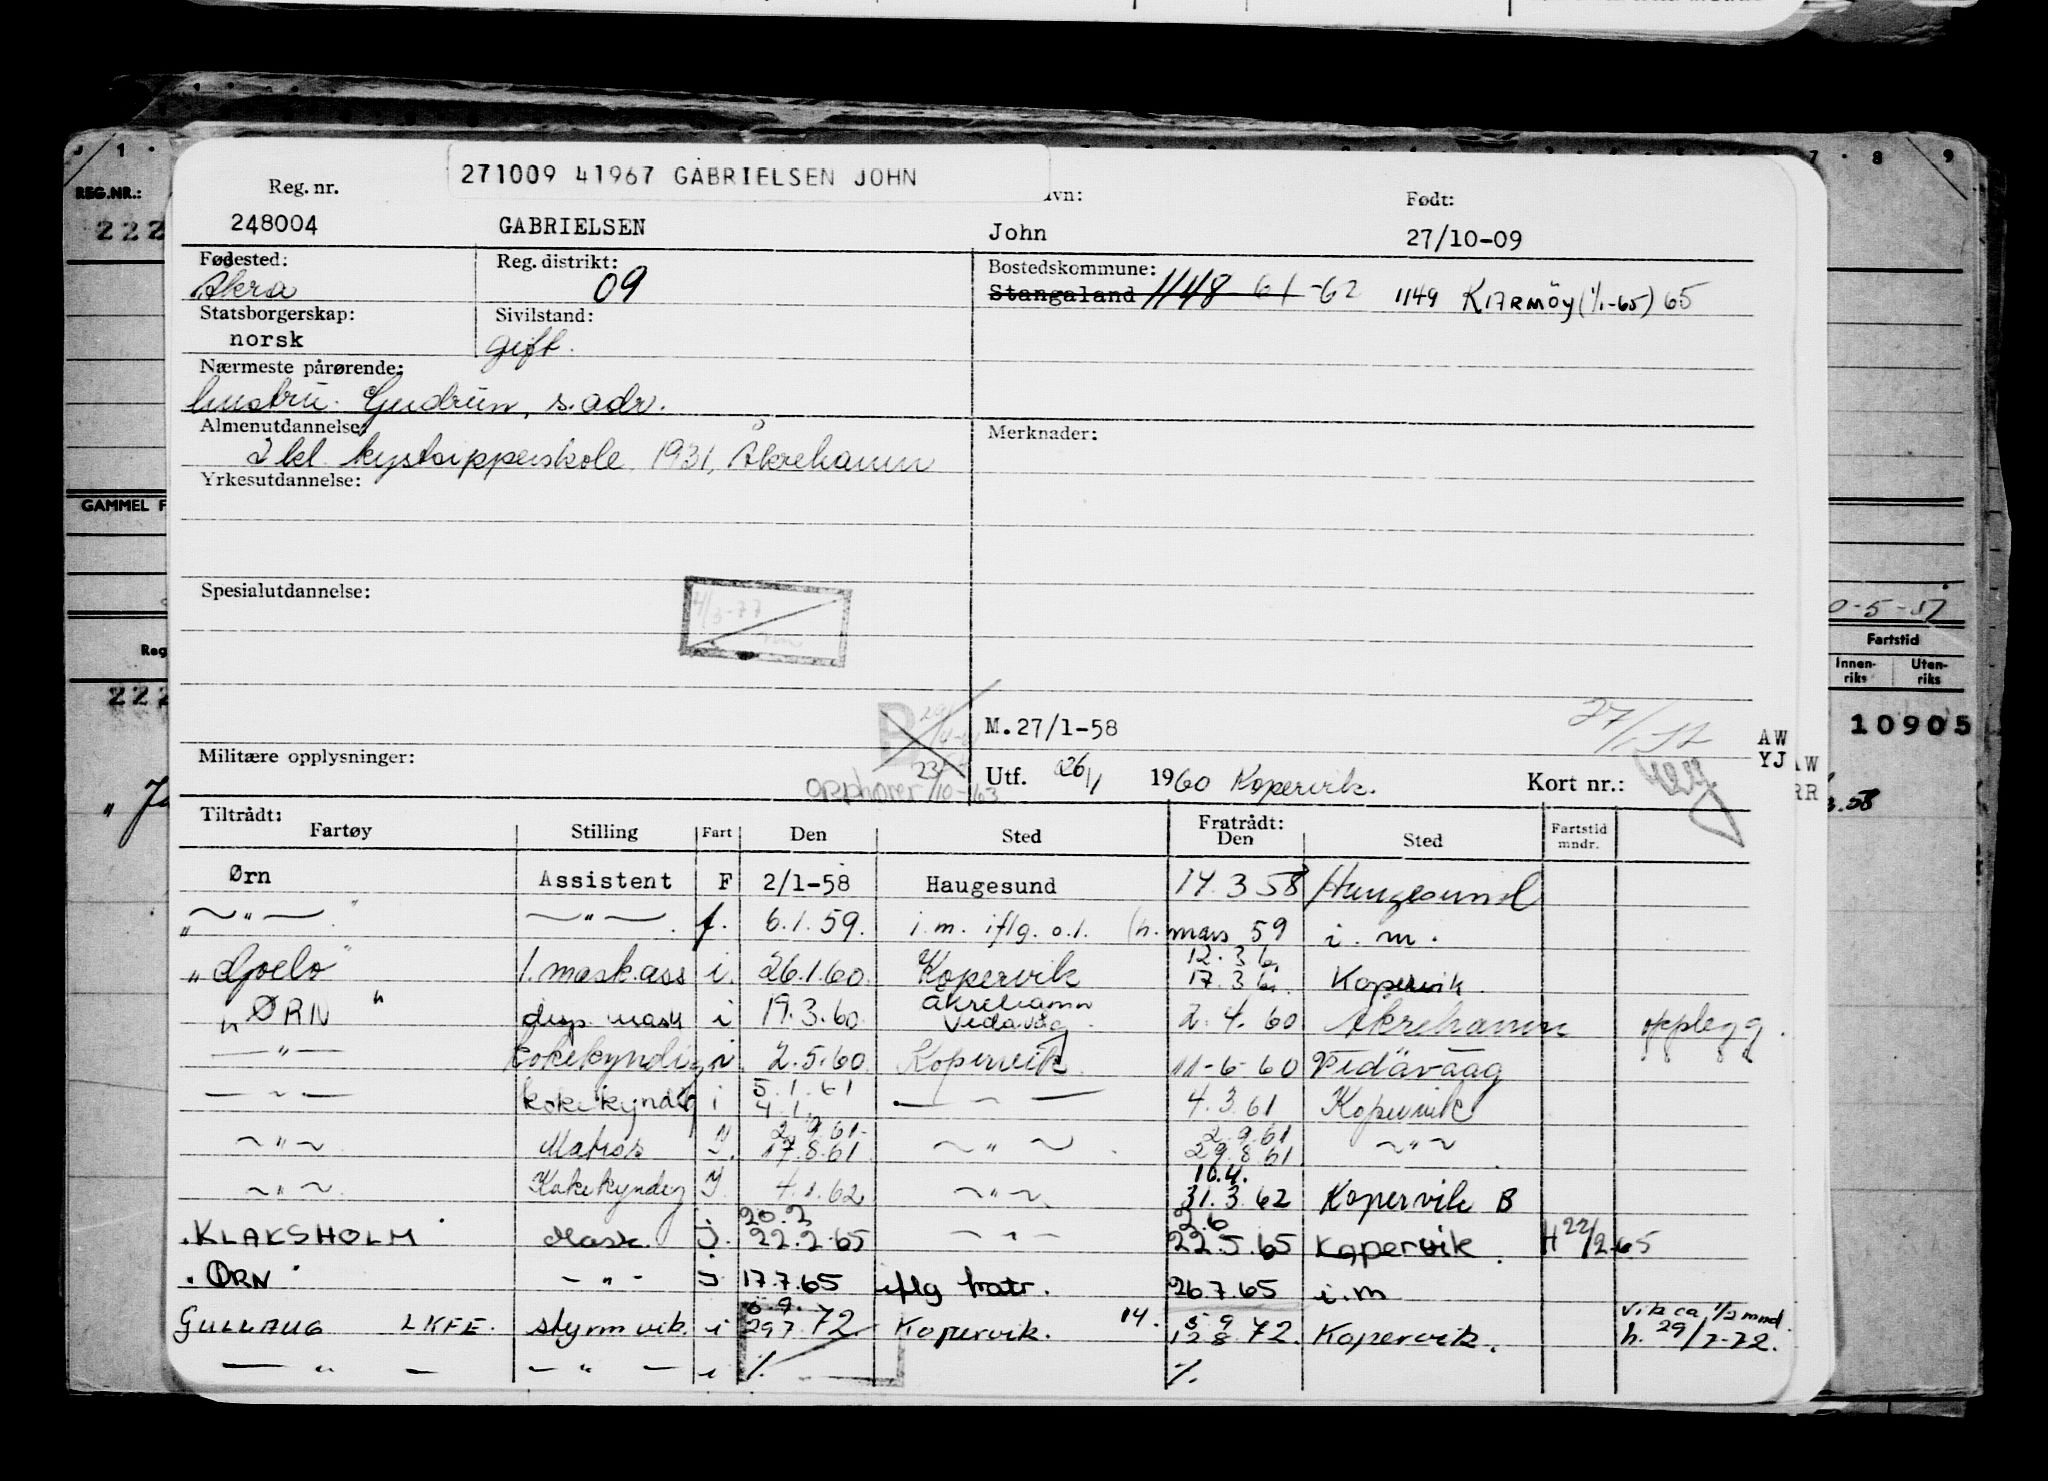 1 7 8 9
REG.NR.:
222
271009 41967 GABRIELSEN JOHN
Reg. nr. avn: Født:
248004 GABRIELSEN John 27/10-09
Fødested: Reg. distrikt: Bostedskommune:
Åkra 09 Stangaland 1148 - 61-62 1149 KARMÖY (1/1-65) 65
Statsborgerskap: Sivilstand:
norsk gift.
Nærmeste pårørende:
hustru Gudrun, s. adr.
Almenutdannelse: Merknader:
2 kl. kystskipperskole 1931, Åkrehamn
Yrkesutdannelse:
GAMMEL F
Spesialutdannelse:
4/3-77
0-5-57
Fartstid
Innen-riks Uten-riks
Reg
222
10905
M.27/1-58
27/
AW
YJ AW
RR
Militære opplysninger: opphører 23/10-63 Utf. 26/1 1960 Kopervik. Kort nr.:
.58
Tiltrådt: Fratrådt:
Fartøy Stilling Fart Den Sted Den Sted Fartstid mndr.
Ørn Assistent F 2/1-58 Haugesund 14.3 58 Haugesund
" — " — " — " — f. 6.1.59. i.m. iflg. o.l. (h. mars 59 i.m.
12.3 6
" " 1. mask.ass i. 26.1.60. Kopervik 17.3 6 Kopervik.
" ØRN " disp. mask i 19.3.60 Åkrehamn Vedavåg 2.4.60 Åkrehamn opplegg.
— " — kokekyndig i 2.5.60 Kopervik 11-6-60 Vedavaag
5.1.61
— " — kokekyndig i 4.1. — " — 4.3.61 Kopervik
2.9.61 2.9.61
— " — Matros Y. 17.8.61 — " — 29.8.61 — " —
10.4.
— " — Kokekyndig Y. 4.1.62 — " — 31.3.62 Kopervik B
20.2 2.6
"KLAKSHOLM" Mask. J. 22.2.65 — " — 22.5.65 Kopervik. H 22/2.65
"ØRN" — " — J 17.7.65 iflg fratr. 26.7.65 i.m
5.9. 5 9 vik ca 1/2 mnd.
GULLAUG LKFE. styrm vik. i 29 7. 72 Kopervik. 14. 12 8 72. Kopervik. h. 29/7-72.
— " — — " — i ./. ./.